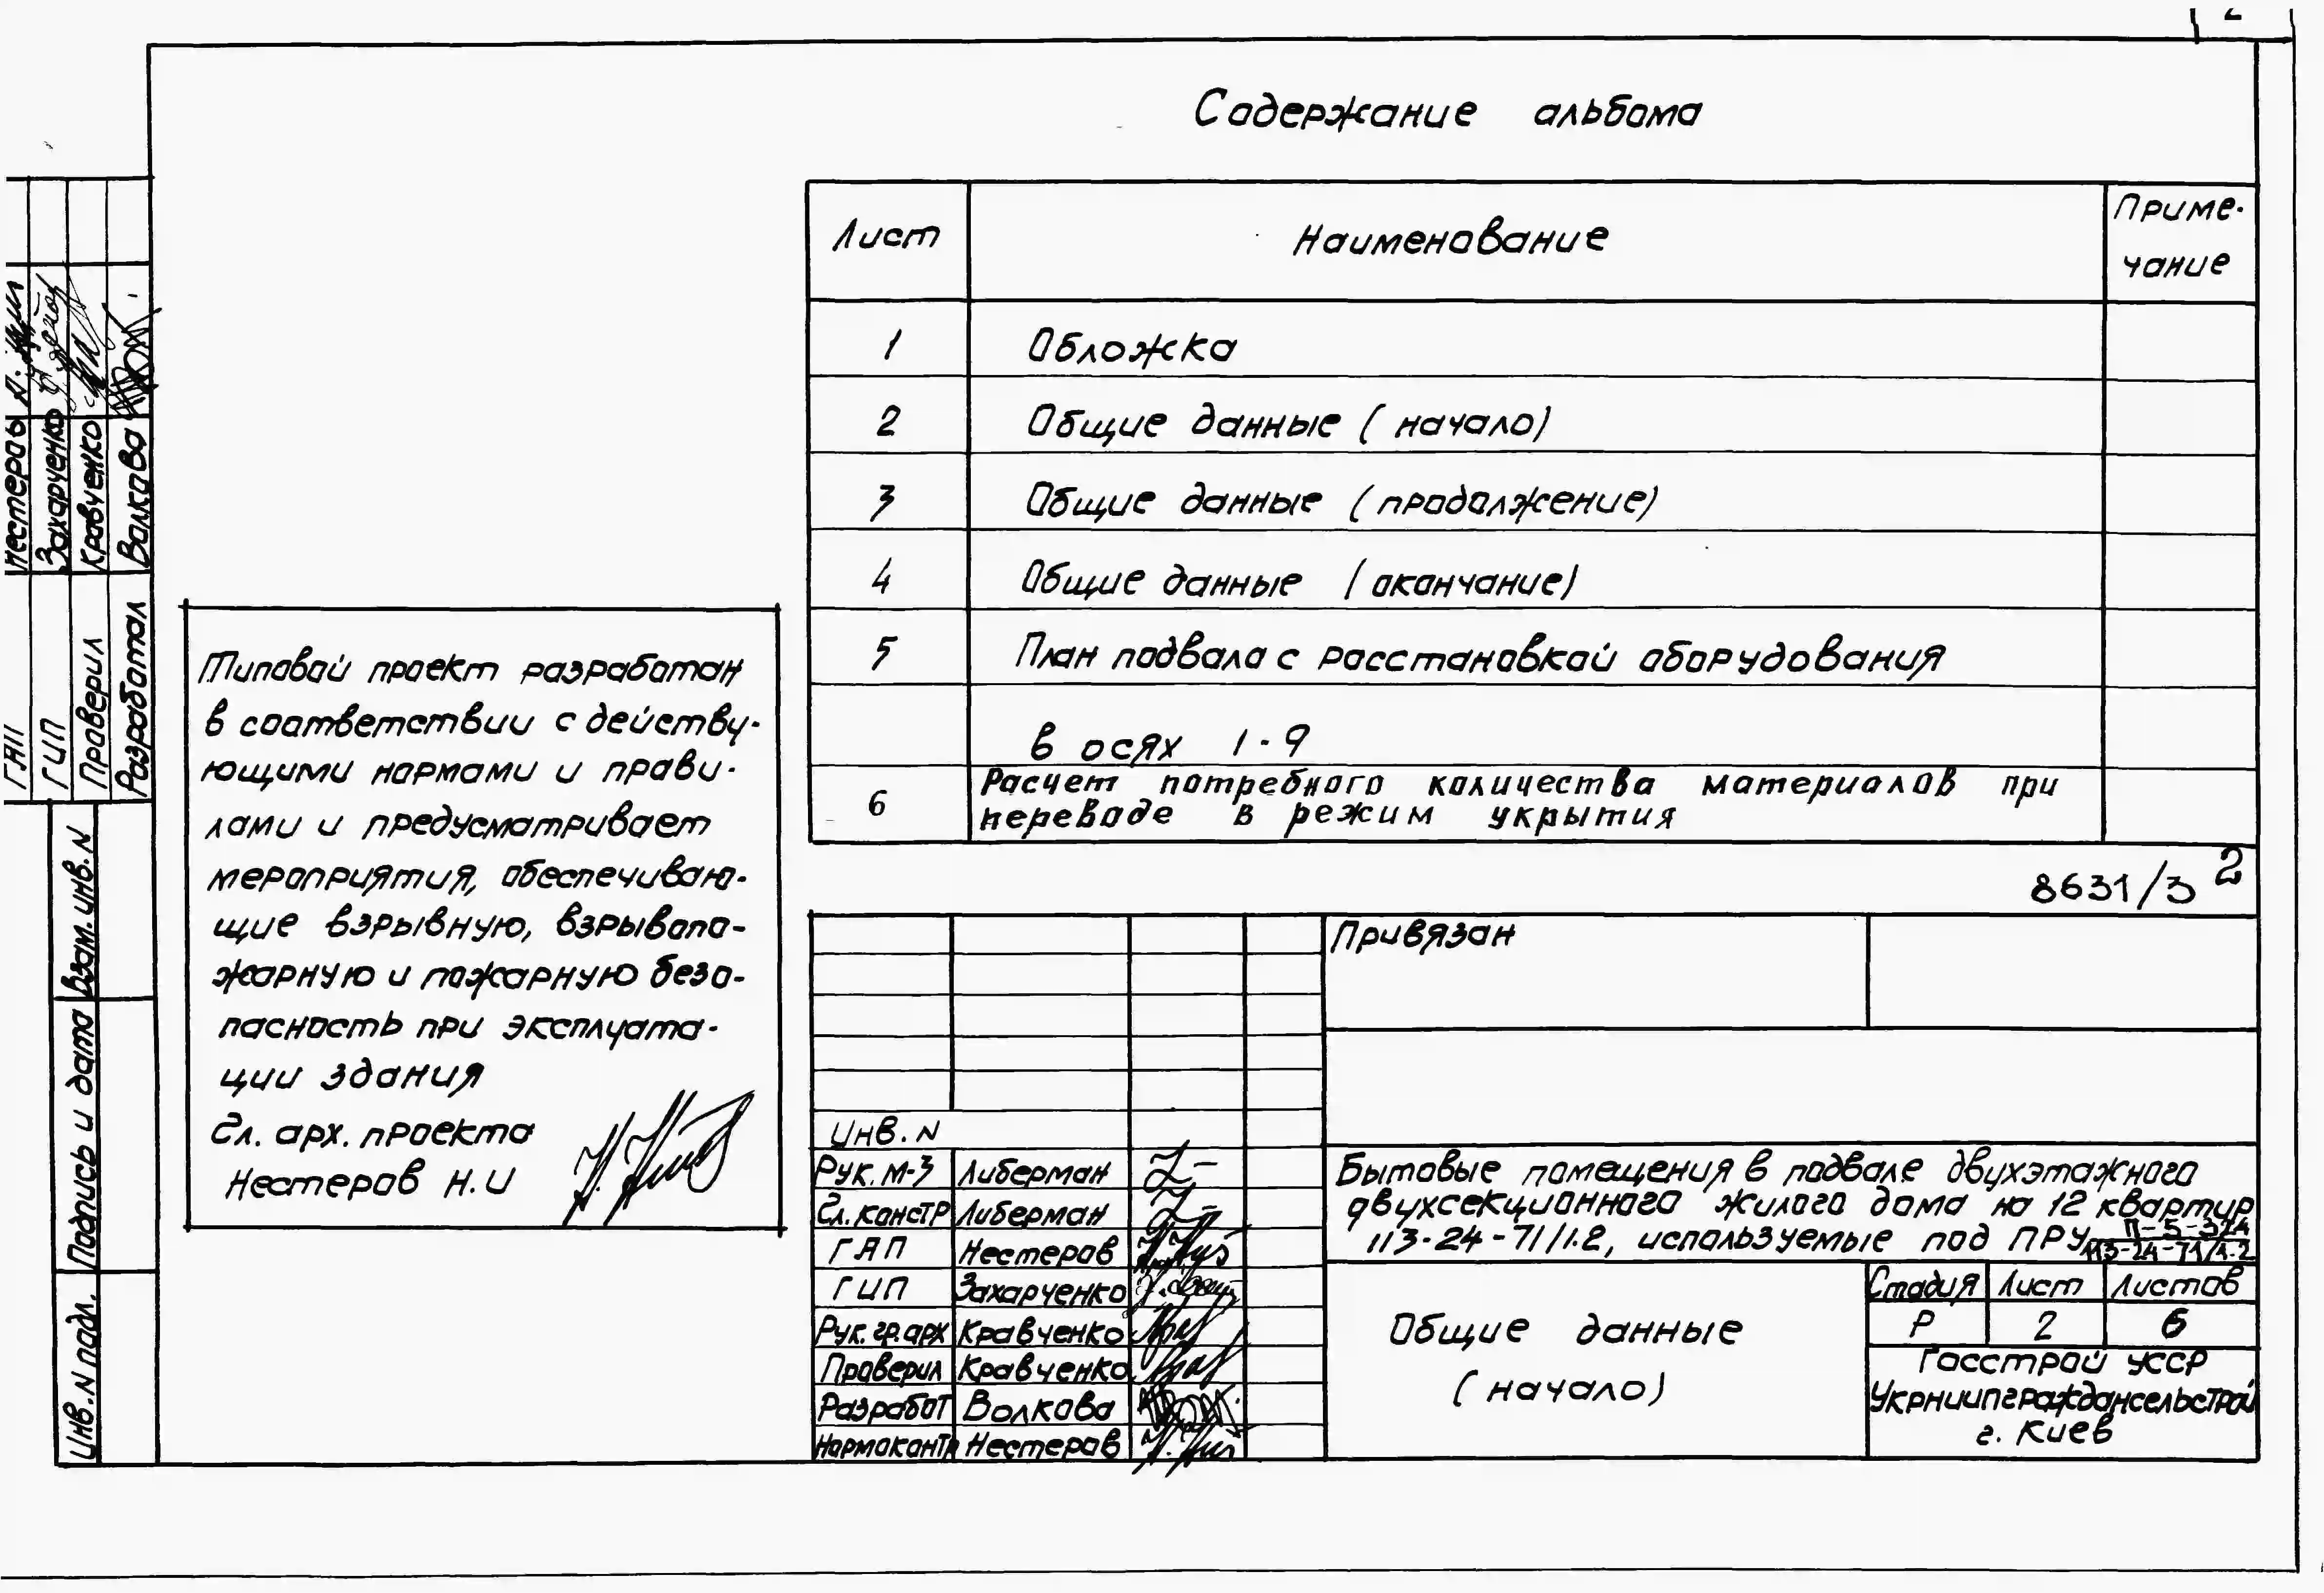 2
Содержание альбома
Лист Наименование Приме-
чание
1 Обложка
2 Общие данные (начало)
3 Общие данные (продолжение)
4 Общие данные (окончание)
5 План подвала с расстановкой оборудования
в осях 1-9
6 Расчет потребного количества материалов при
переводе в режим укрытия
8631/3 2
Типовой проект разработан
в соответствии с действу-
ющими нормами и прави-
лами и предусматривает
мероприятия, обеспечиваю-
щие взрывную, взрывопо-
жарную и пожарную безо-
пасность при эксплуата-
ции здания
Гл. арх. проекта
Нестеров Н.И
ГАП Нестеров
ГИП Захарченко
Проверил Кравченко
Разработал Волкова
Взам. инв. N
Подпись и дата
Инв. N подл.
Привязан
Инв. N
Рук. М-3 Либерман
Гл. констр Либерман
ГАП Нестеров
ГИП Захарченко
Рук. гр. арх Кравченко
Проверил Кравченко
Разработ Волкова
Нормоконтр Нестеров
Бытовые помещения в подвале двухэтажного
двухсекционного жилого дома на 12 квартир
113-24-71/1.2, используемые под ПРУ
113-24-71/1.2
Общие данные
(начало)
Стадия Лист Листов
Р 2 6
Госстрой УССР
Укрниипграждансельстрой
г. Киев